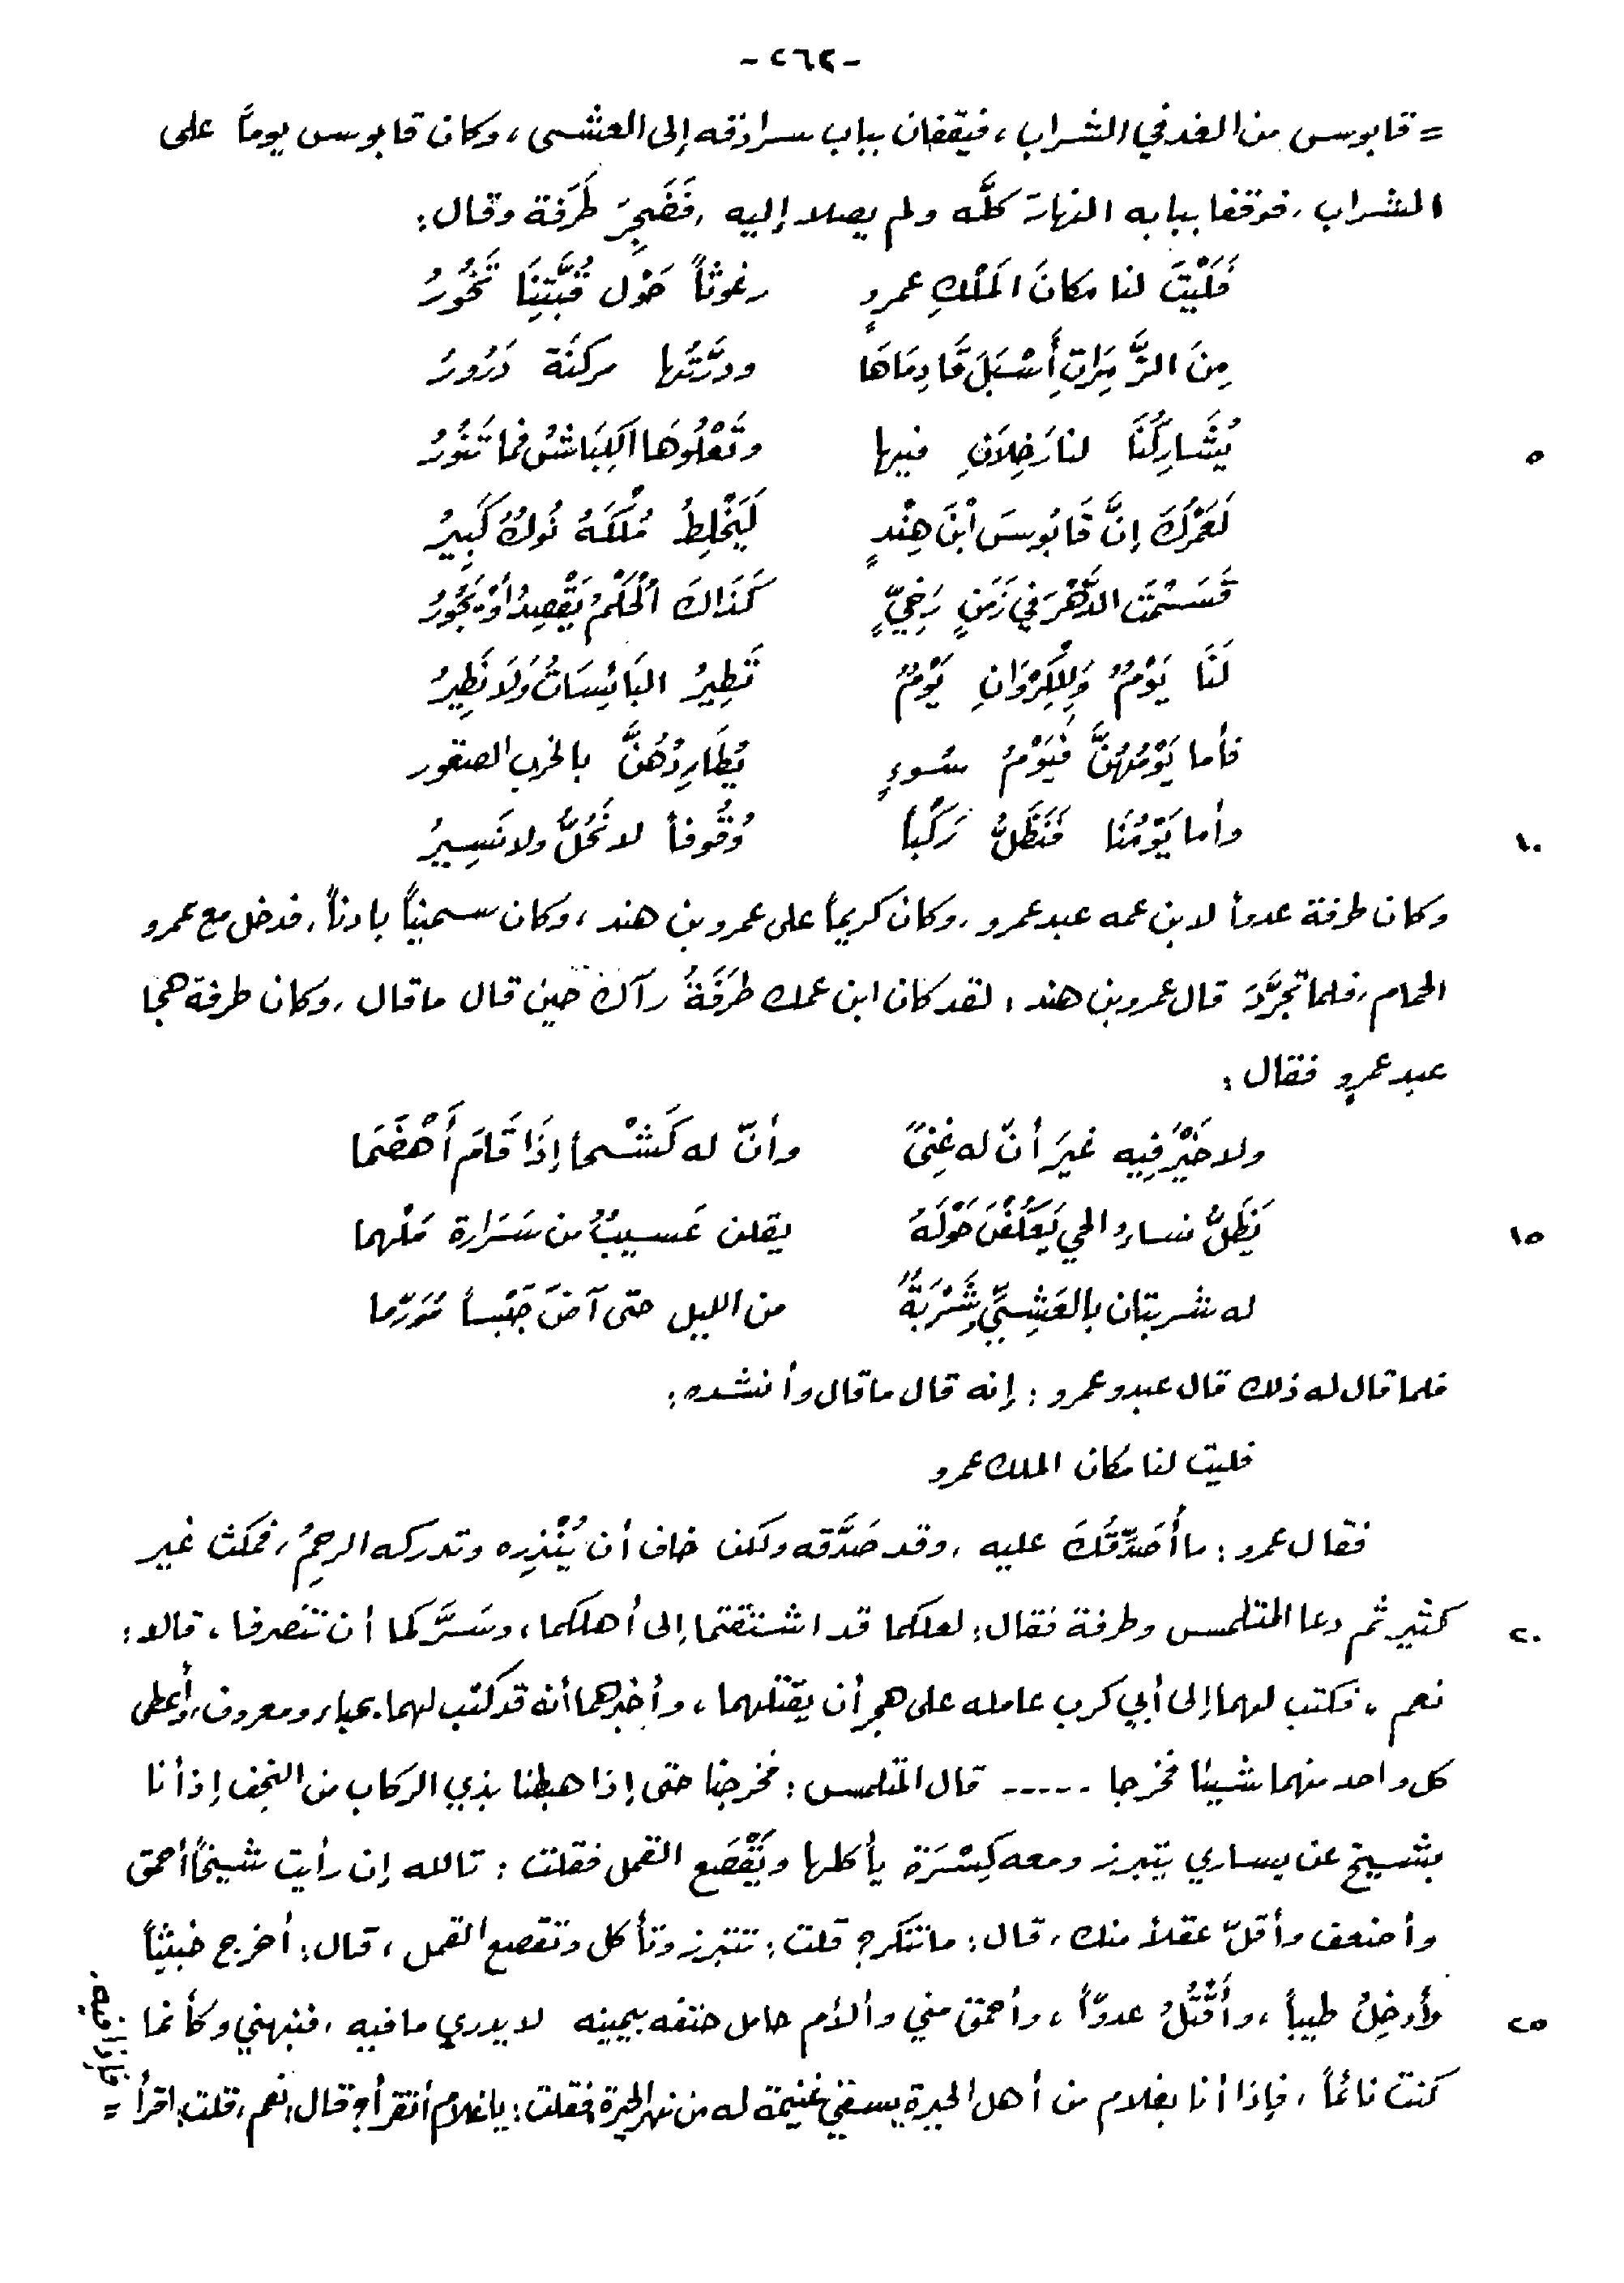 -٢٦٢-
= قابوس من الغد في الشراب، فيقفان بباب سرادقه إلى العشى، وكان قابوس يوماً على
الشراب، فوقفا ببابه النهار كلَّه ولم يصلا إليه، فَضَجِرَ طَرَفة وقال:
فَلَيْتَ لنا مكانَ المَلْكِ عمرٍو رغوثاً حَوْل قُبَّتِنَا تَخُورُ
مِنَ الزَّمِرَاتِ أَسْبَلَ قَادِمَاهَا ودَرَّتُها مركنَة دَرُورُ
٥ يُشَارِكُنَا لنا رَخِلاَنِ فيها وتَعْلُوهَا الكِبَاشُ فما تَنُورُ
لَعَمْرُكَ إنَّ قَابُوسَ ابْنَ هِنْدٍ لَيَخْلِطُ مُلْكَهُ نُوكٌ كَبِيرُ
قَسَمْتَ الدَّهْرَ في زَمَنٍ رَخِيٍّ كَذَاكَ الْحُكْمُ يَقْصِدُ أَوْ يَجُورُ
لَنَا يَوْمٌ وَلِلْكِرْوَانِ يَوْمٌ تَطِيرُ البَائِسَاتُ وَلَا نَطِيرُ
فأما يَوْمُهُنَّ فَيَوْمُ سُوءٍ يُطَارِدُهُنَّ بالخرب الصقور
١٠ وأما يَوْمُنَا فَنَظَلُّ رَكْباً وُقُوفاً لا نَحُلُّ ولا نَسِيرُ
وكان طرفة عدواً لابن عمه عبد عمرو، وكان كريماً على عمرو بن هند، وكان سميناً بادناً، فدخل مع عمرو
الحمام، فلما تجرَّدَ قال عمرو بن هند: لقد كان ابن عمك طَرَفَةُ رآك حين قال ما قال، وكان طرفة هجا
عبد عمرٍو فقال:
ولا خَيْرَ فِيه غيرَ أنّ له غِنىً وأنّ له كَشْحاً إذَا قَامَ أَهْضَمَا
١٥ يَظَلُّ نساء الحي يَعْكُفْنَ حَوْلَهُ يقلن عَسيبٌ من سَرَارة مَلْهما
له شربتان بالعَشِيِّ وشَرْبَةٌ من الليل حتى آضَ جَبْساً مُوَرّما
فلما قال له ذلك قال عبدو عمرو: إنه قال ما قال وأنشده:
فليت لنا مكان الملك عمرو
فقال عمرو: ما أُصَدِّقُكَ عليه، وقد صَدَّقه ولكن خاف أن يُنْذِره وتدركه الرحِمُ، فمكث غير
٢٠ كثير ثم دعا المتلمس وطرفة فقال: لعلكما قد اشتقتما إلى أهلكما، وسَرَّكما أن تنصرفا، قالا:
نعم، فكتب لهما إلى أبي كرب عامله على هجر أن يقتلهما، وأخبرهما أنه قد كتب لهما بحباء ومعروف، وأعطى
كل واحد منهما شيئا فخرجا ..... قال المتلمس: فخرجنا حتى إذا هبطنا بذي الركاب من النجف إذ أنا
بشيخ عن يساري يتبرز ومعه كِسْرَة يأكلها ويَقْصَع القمل فقلت: تالله إن رأيت شيخاً أحمق
وأضعف وأقلّ عقلاً منك، قال: ما تنكر؟ قلت: تتبرز وتأكل وتقصع القمل، قال: أخرج خبيثاً
٢٥ وأُدخِلُ طيباً، وأَقْتُلُ عدوّاً، وأحمق مني وألأم حامل حتفه بيمينه لا يدري ما فيه، فنبهني وكأنما
كنت نائماً، فإذا أنا بغلام من أهل الحيرة يسقي غنيمة له من نهر الحيرة فقلت: يا غلام أتقرأ؟ قال: نعم، قلت: اقرأ =
فإذا فيه